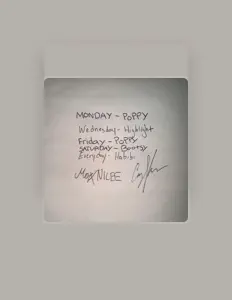 MONDAY - POPPY
Wednesday - Highlight
Friday - POPPY
SATURDAY - Bootsy
Everyday - Habibi
Max NILBE